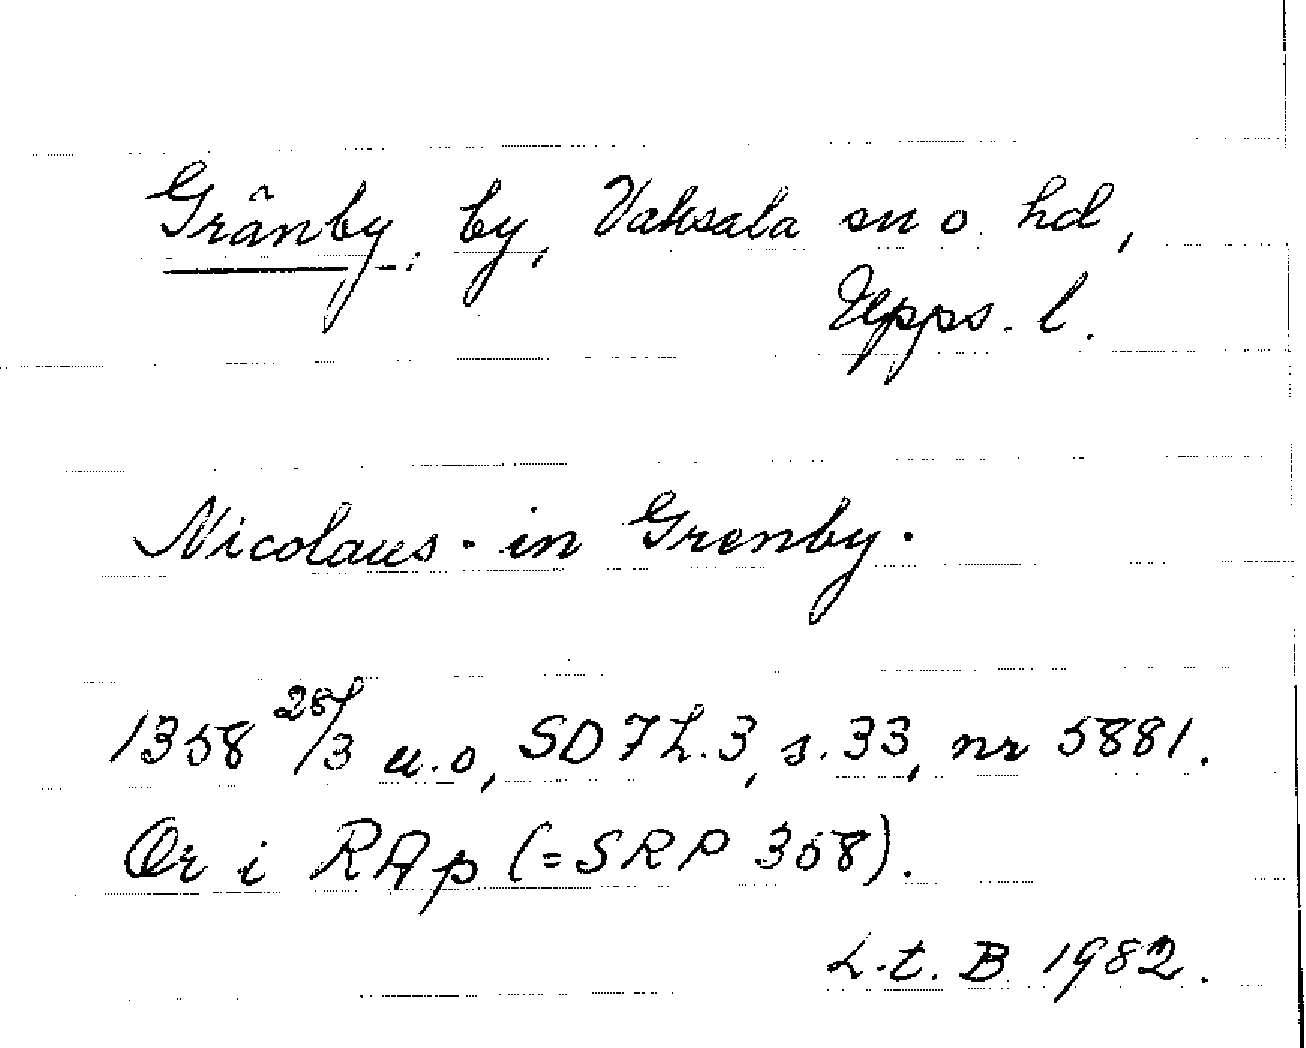 Gränby, by, Vaksala sn o. hd,
Upps. l.
Nicolaus - in Grenby.
1358 28/3 u.o, SD 7 h. 3, s. 33, nr 5881.
Or i RAp (=SRP 358).
L.t. B 1982.